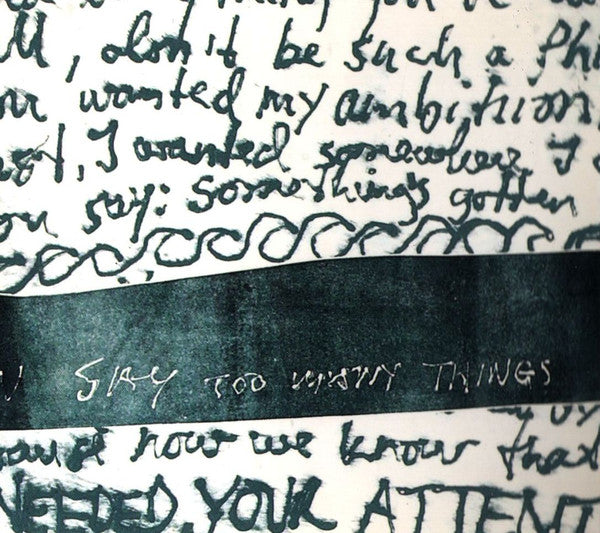 thing you've
ll, don't be such a Phi
wanted my ambition,
not, I wanted somewhere I
ou say: Something's gotten
U SAY TOO MANY THINGS
now we know that
NEEDED YOUR ATTENT